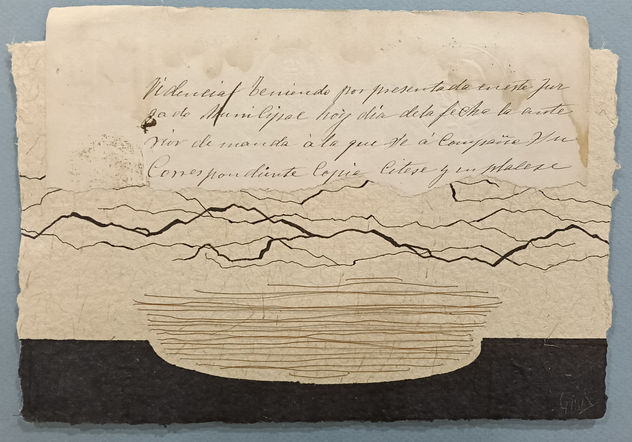 Videncia/ Teniendo por presentada en este Juz
gado Municipal hoy dia de la fecha la ante
rior demanda à la que se à compaña su
Correspondiente Copia Citese y emplacese